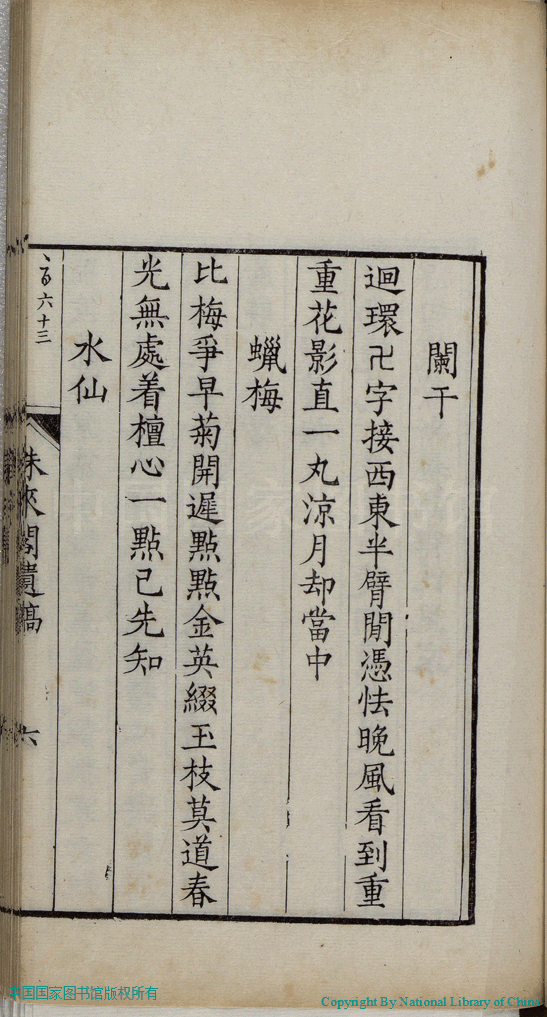 闌干
迴環卍字接西東半臂閒憑怯晚風看到重
重花影直一丸涼月却當中
蠟梅
比梅爭早菊開遲點點金英綴玉枝莫道春
光無處着檀心一點已先知
水仙
六十三
閣遺稿
六
中国国家图书馆版权所有
Copyright By National Library of China